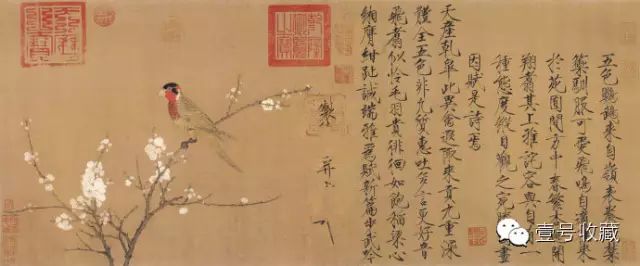 五色鸚鵡來自嶺表養之禁
籞馴服可愛飛鳴自適往來
於苑囿間方中春繁杏遍開
翔翥其上雅詫容與自有一
種態度縱目觀之宛勝圖畫
因賦是詩焉
天產乾皋此異禽遐陬來貢九重深
體全五色非凡質惠吐多言更好音
飛翥似憐毛羽貴徘徊如飽稻粱心
緗膺紺趾誠端雅為賦新篇步武吟
製
并
壹号收藏